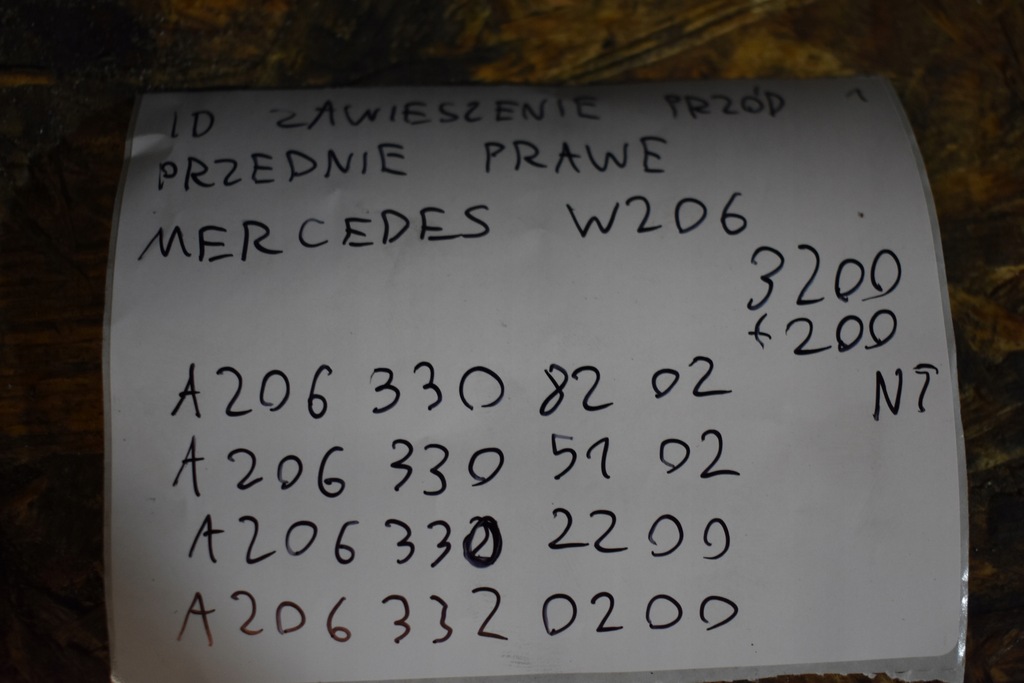 ID ZAWIESZENIE PRZÓD 1
PRZEDNIE PRAWE
MERCEDES W206
3200
+200
NT
A206 330 82 02
A206 330 51 02
A206 330 2200
A206 332 0200